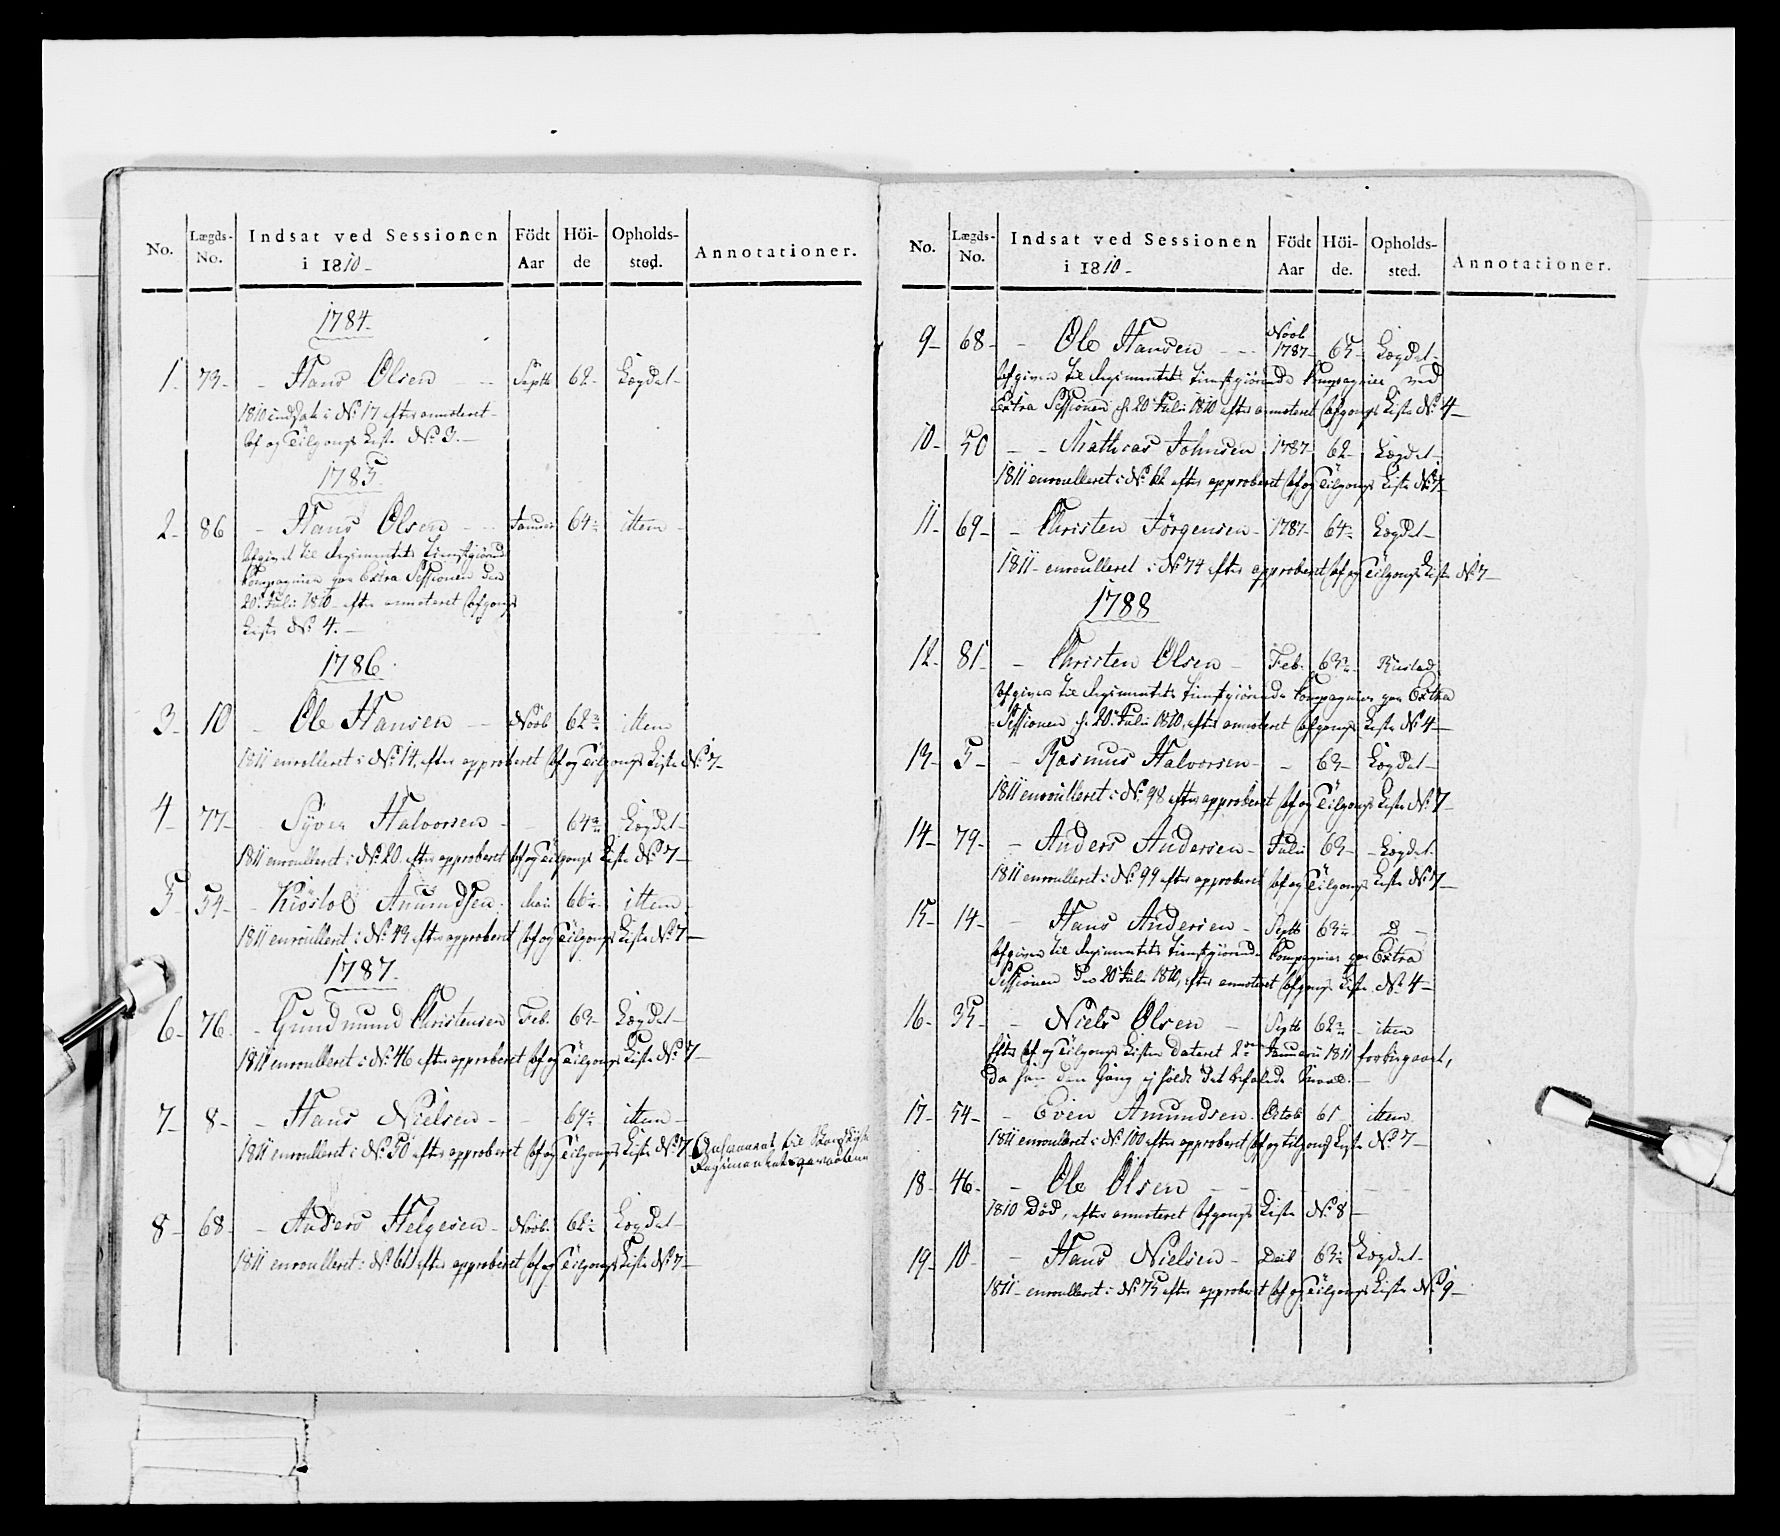 No. Lægds-No. Indsat ved Sessionen i 1810- Födt Aar Höide Opholdssted. Annotationer.
1784-
1- 73- - Hans Olsen - - Septb 62- Lægdet-
1810 indsat i No. 17 efter annoteret
Af og Tilgangs Liste No. 3.-
1785
2- 86 - Hans Olsen - - Januar 64- ittem -
Afgivet til Regimentets tienstgiörende
Kompagnier paa Extra Sessionen den
20. Juli 1810 - efter annoteret Afgangs
Liste No. 4.-
1786.
3- 10 - Ole Hansen - Növb 62- ittem
1811 enroulleret i No. 14, efter approberet Af og Tilgangs Liste No. 7-
4- 77- - Syver Halvorsen - - 64- Lægdet-
1811 enroulleret i No. 20. efter approberet Af og Tilgangs Liste No. 7-
5- 54- - Kiöstol Amundsen Mai 66- ittem
1811 enroulleret i No. 43 efter approberet Af og Tilgangs Liste No. 7-
1787.
6- 76- - Gundmund Christensen Feb. 63- Lægdet-
1811 enroulleret i No. 46 efter approberet Af og Tilgangs Liste No. 7-
7- 8- - Hans Nielsen - - 69- ittem-
1811 enroulleret i No. 50 efter approberet Af og Tilgangs Liste No. 7
8- 68- - Anders Helgesen - Növb. 62- Lægdet-
1811 enroulleret i No. 62 efter approberet Af og Tilgangs Liste No. 7-
No. Lægds-No. Indsat ved Sessionen i 1810- Födt Aar Höide. Opholdssted. Annotationer.
9- 68- - Ole Hansen - - Növb 1787- 65- Lægdet-
Afgiven til Regimentets tienstgiörende Kompagnier ved
Extra Sessionen d. 20 Juli 1810 efter annoteret Afgangs Liste No. 4-
10- 50 - - Mathias Johnsen 1787- 62- Lægdet-
1811 enroulleret i No. 62 efter approberet Af og Tilgangs Liste No. 7-
11- 69- - Christen Jörgensen - 1787- 64- Lægdet-
1811- enroulleret i No. 74 efter approberet Af og Tilgangs Liste No. 7-
1788
12- 81- - Christen Olsen - Feb. 63- Rustad
Afgiven til Regimentets tienstgiörende Kompagnier paa Extra
Sessionen d. 20 Juli 1810, efter annoteret Afgangs Liste No. 4-
13- 5- - Rasmus Halvorsen - - 63- Lægdet-
1811 enroulleret i No. 98 efter approberet Af og Tilgangs Liste No. 7-
14- 79- - Anders Andersen - Juli 63- - Lægdet.
1811 enroulleret i No. 99 efter approberet Af og Tilgangs Liste No. 7-
15- 14- - Hans Andersen - Septb 63- D -
Afgiven til Regimentets tienstgiörende Kompagnier paa Extra
Sessionen den 20 Juli 1810, efter annoteret Afgangs Liste No. 4-
16- 35- - Niels Olsen - Septb 62- - ittem
Efter Af og Tilgangs Listen dateret 2den Januarii 1811 forbigaaet,
da han den Gang ej holdt det befalede Maal.-
17- 54- - Even Amundsen - Octob 61 ittem
1811 enroulleret i No. 100 efter approberet Af og tilgangs Liste No. 7-
18- 46- - Ole Olsen - -
1810 Död, efter annoteret Afgangs Liste No. 8-
19- 10- - Hans Nielsen - Decb 63- Lægdet-
1811- enroulleret i No. 75 efter approberet Af og Tilgangs Liste No. 9-